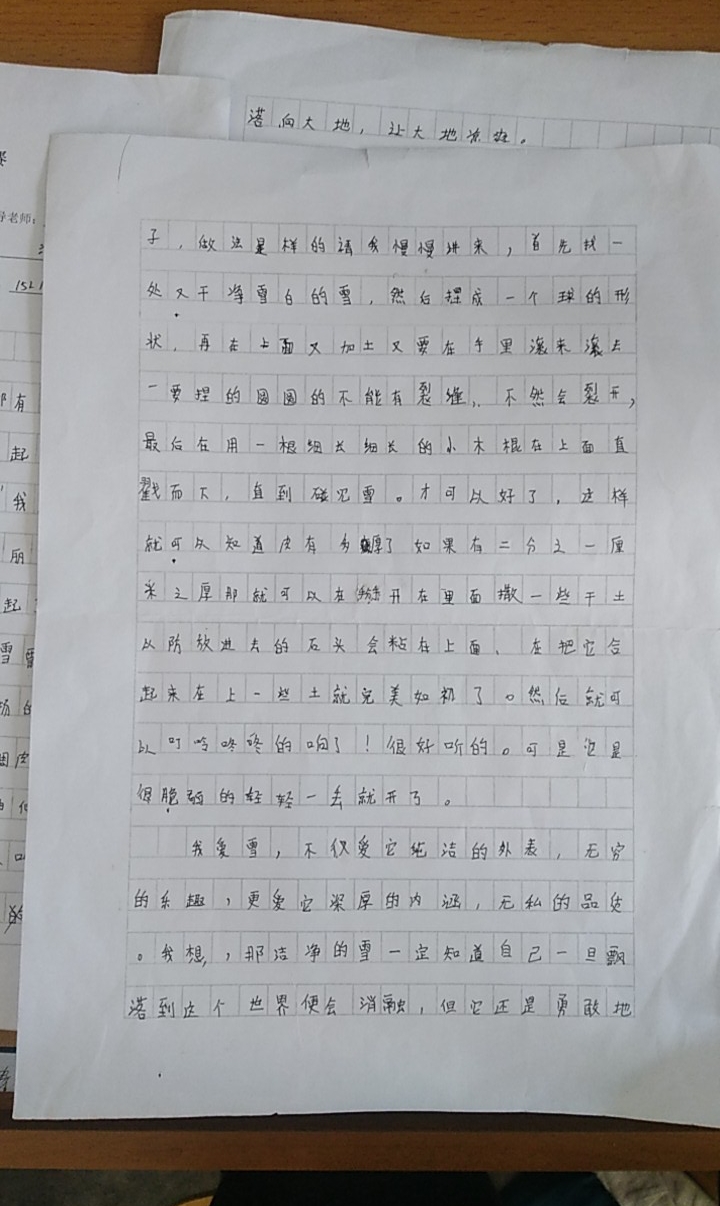 落向大地，让大地凉爽。
导老师：
1521
子，做法是样的请我慢慢讲来，首先找一
处又干净雪白的雪，然后捏成一个球的形
状，再在上面又加土又要在手里滚来滚去
一要捏的圆圆的不能有裂缝，不然会裂开，
最后在用一根细长细长的小木棍在上面直
戳而下，直到碰见雪。才可以好了，这样
就可以知道皮有多厚了如果有二分之一厘
米之厚那就可以在掰开在里面撒一些干土
以防放进去的石头会粘在上面、在把它合
起来在上一些土就完美如初了。然后就可
以叮呤咚咚的响了！很好听的。可是它是
很脆弱的轻轻一丢就开了。
我爱雪，不仅爱它纯洁的外表，无穷
的乐趣，更爱它深厚的内涵，无私的品质
。我想，，那洁净的雪一定知道自己一旦飘
落到这个世界便会消融，但它还是勇敢地
有
起
我
丽
起
雪
的
皮